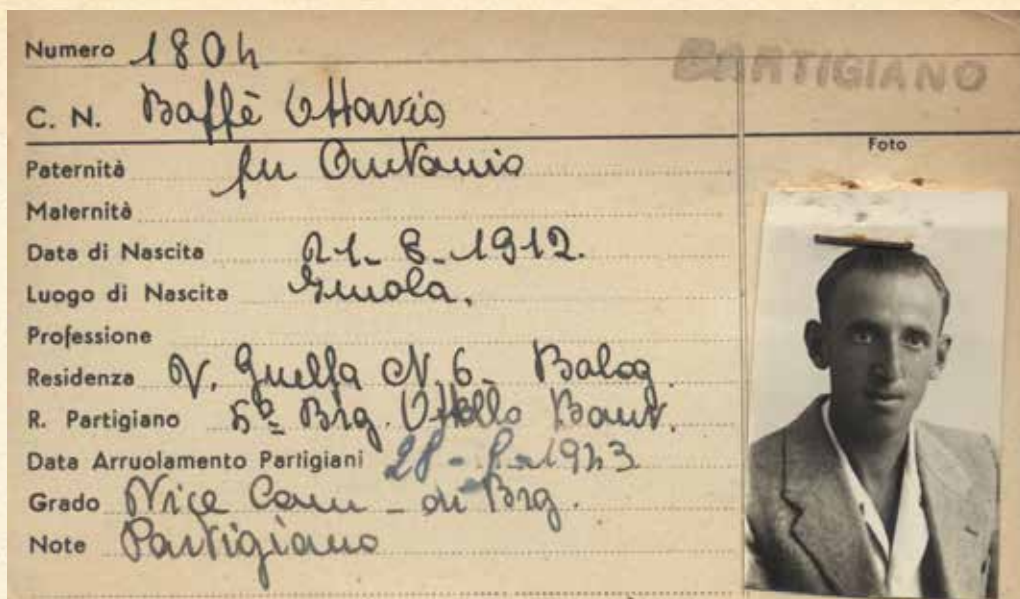 Numero 1804
PARTIGIANO
C. N. Baffè Ottavio
Foto
Paternità fu Antonio
Maternità
Data di Nascita 21-8-1912.
Luogo di Nascita Imola.
Professione
Residenza V. Guelfa N. 6- Bolog.
R. Partigiano 5ª Brg. Otello Bonv.
Data Arruolamento Partigiani 1943
Grado Vice Com - di Brg.
Note Partigiano